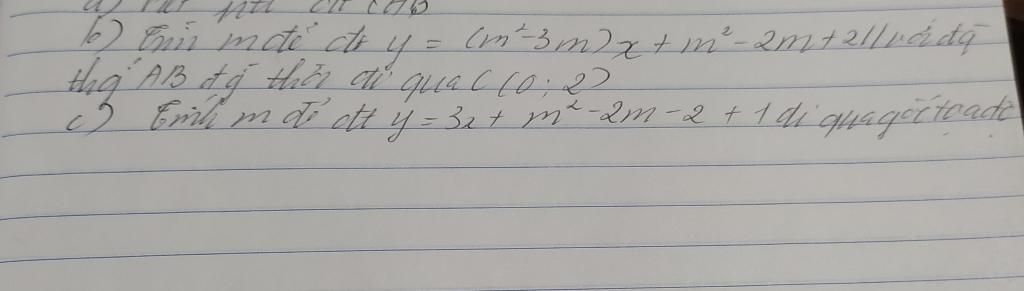 a) Viết ptđt
b) Tính m để đt y = (m² - 3m)x + m² - 2m + 2 // với đg
thg AB đg thời đi qua C (0; 2)
c) Tính m để đt y = 3x + m² - 2m - 2 + 1 đi qua gốc toạ độ